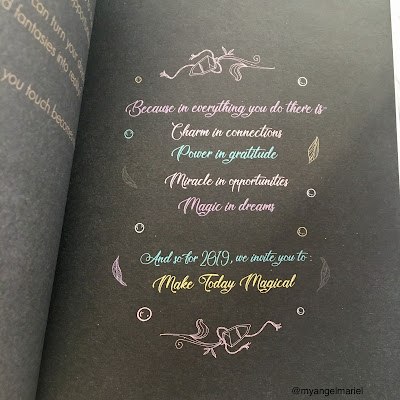 can turn your
d fantasies into
you touch becomes
Because in everything you do there is-
Charm in connections
Power in gratitude
Miracle in opportunities
Magic in dreams
And so for 2019, we invite you to:
Make Today Magical
@myangelmariel